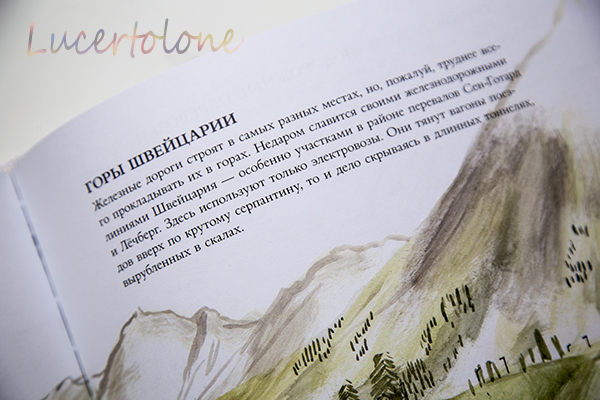 Lucertolone
ГОРЫ ШВЕЙЦАРИИ
Железные дороги строят в самых разных местах, но, пожалуй, труднее все-
го прокладывать их в горах. Недаром славится своими железнодорожными
линиями Швейцария — особенно участками в районе перевалов Сен-Готард
и Лёчберг. Здесь используют только электровозы. Они тянут вагоны поез-
дов вверх по крутому серпантину, то и дело скрываясь в длинных тоннелях,
вырубленных в скалах.